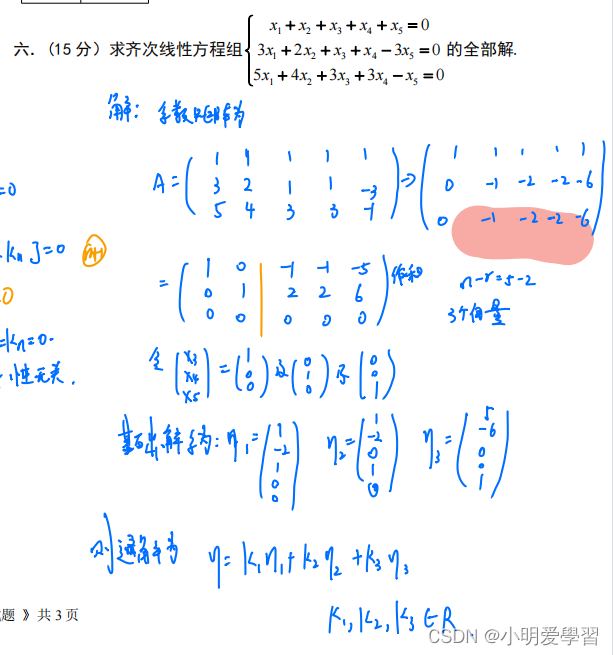 六.（15 分）求齐次线性方程组
x₁+x₂+x₃+x₄+x₅=0
3x₁+2x₂+x₃+x₄−3x₅=0
5x₁+4x₂+3x₃+3x₄−x₅=0
的全部解.
解: 系数矩阵为
A= ( 1 1 1 1 1
3 2 1 1 -3
5 4 3 3 -1 ) → ( 1 1 1 1 1
0 -1 -2 -2 -6
0 -1 -2 -2 -6 )
=0
kₙ]=0
= ( 1 0 -1 -1 -5
0 1 2 2 6
0 0 0 0 0 )
n-r=5-2
3个向量
0
=kₙ=0.
性无关.
令 ( x₃ x₄ x₅ ) = ( 1 0 0 ) 及 ( 0 1 0 ) 及 ( 0 0 1 )
基础解系为: η₁= ( 1 -2 1 0 0 ) η₂= ( 1 -2 0 1 0 ) η₃= ( 5 -6 0 0 1 )
则通解为 η=k₁η₁+k₂η₂+k₃η₃
k₁,k₂,k₃∈R.
题 》共 3 页
CSDN @小明爱學習